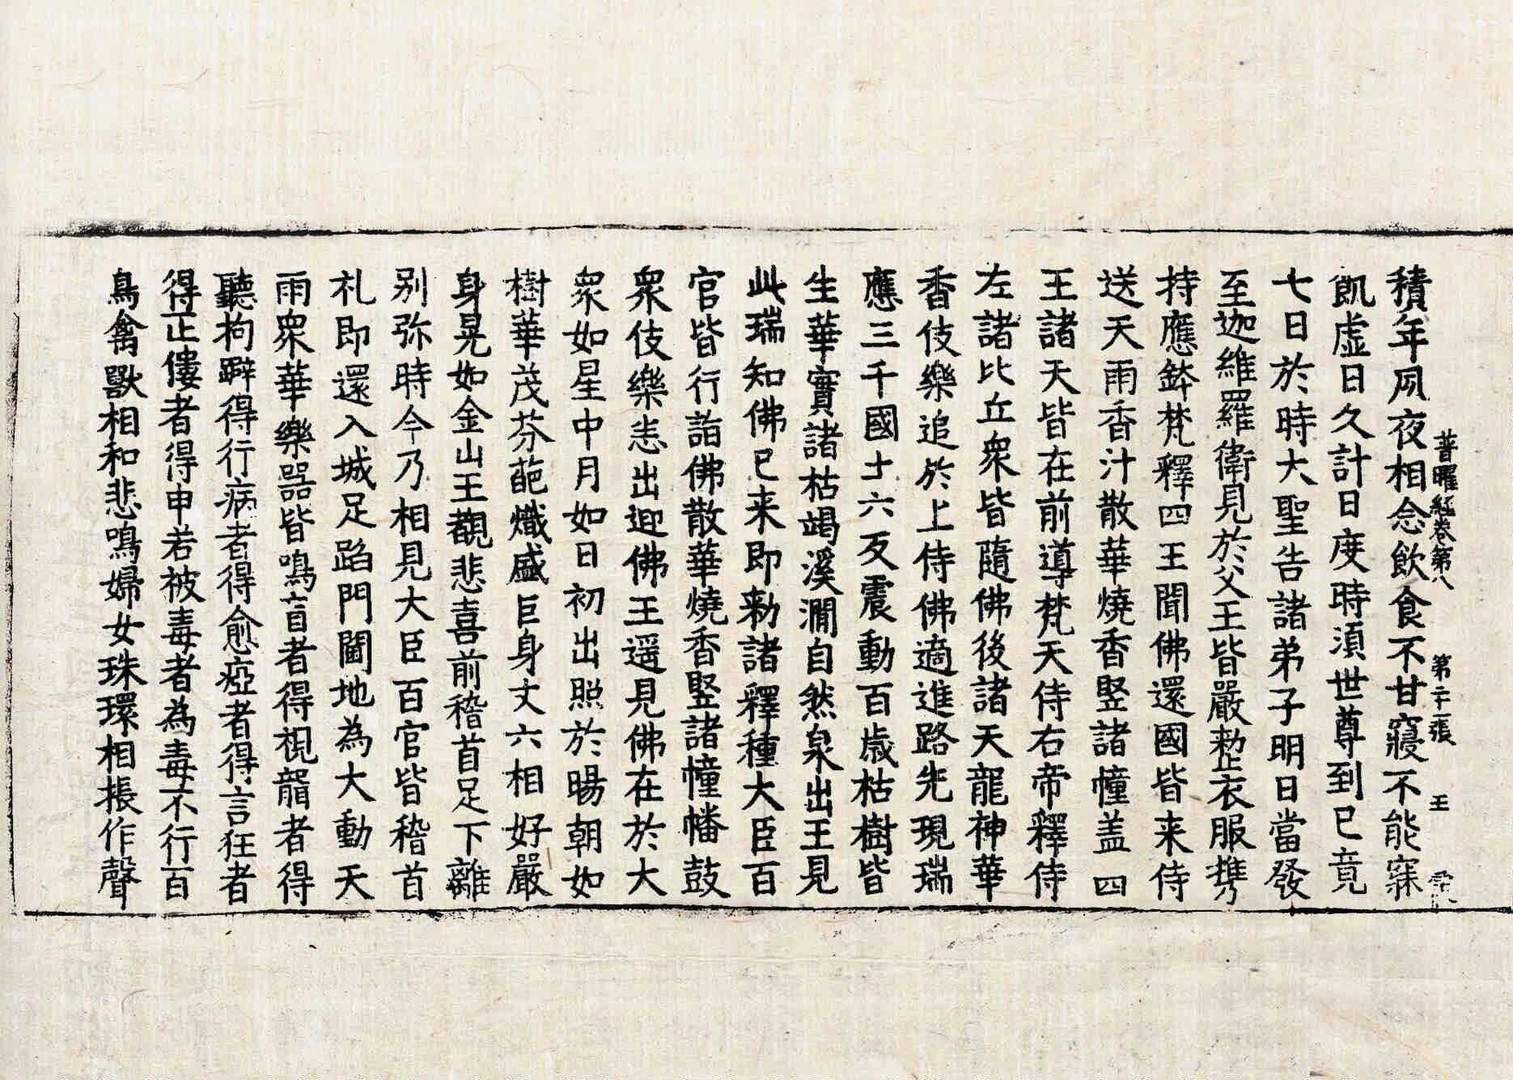 普曜經卷第八　第二十二張　王
積年夙夜相念飲食不甘寢不能寐
飢虛日久計日度時須世尊到已竟
七日於時大聖告諸弟子明日當發
至迦維羅衛見於父王皆嚴整衣服携
持應鉢梵釋四王聞佛還國皆来侍
送天雨香汁散華燒香竪諸幢盖四
王諸天皆在前導梵天侍右帝釋侍
左諸比丘衆皆隨佛後諸天龍神華
香伎樂追於上侍佛適進路先現瑞
應三千國土六反震動百歲枯樹皆
生華實諸枯竭溪澗自然泉出王見
此瑞知佛已来即勑諸釋種大臣百
官皆行詣佛散華燒香竪諸幢幡鼓
衆伎樂悉出迎佛王遥見佛在於大
衆如星中月如日初出照於暘朝如
樹華茂芬葩熾盛巨身丈六相好嚴
身晃如金山王觀悲喜前稽首足下離
别弥時今乃相見大臣百官皆稽首
礼即還入城足蹈門閫地為大動天
雨衆華樂器皆鳴盲者得視聾者得
聽拘躃得行病者得愈瘂者得言狂者
得正僂者得申若被毒者為毒不行百
鳥禽獸相和悲鳴婦女珠環相棖作聲